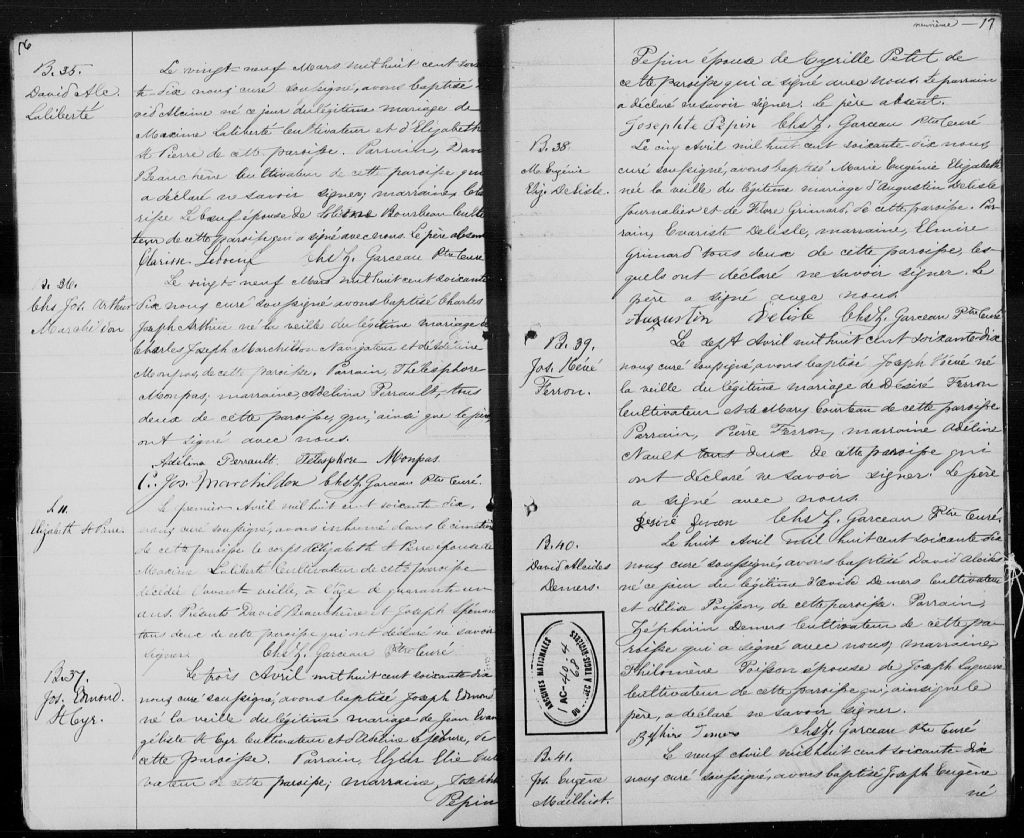 16
B. 35.
David Ale
Laliberté
Le vingt-neuf Mars mil huit cent soix
te dix nous curé soussigné, avons baptisé
vid né ce jour du légitime mariage de
Maxime Laliberté Cultivateur et d'Elizabeth
St Pierre de cette paroisse. Parrain, Davi
Beauchêne Cultivateur de cette paroisse qui
a déclaré ne savoir signer, marraine, Cla
risse Leboeuf épouse de Bourbeau Culti
teur de cette paroisse, qui a signé avec nous. Le père absent
Clarisse Leboeuf Chs Z. Garceau Ptre Curé
B. 36.
Chs Jos. Arthur
Marchildon
Le vingt-neuf Mars mil huit cent soixante
dix nous curé soussigné avons baptisé Charles
Joseph Arthur né la veille du légitime mariage de
Charles Joseph Marchildon Navigateur et d'Adéline
Monpas, de cette paroisse. Parrain, Thélesphore
Monpas, marraine, Adelina Perrault, tous
deux de cette paroisse, qui, ainsi que le père
ont signé avec nous.
Adélina Perrault. Télesphore Monpas
C. Jos. Marchildon Chs Z. Garceau Ptre Curé.
S. 11.
Elizabeth St Pierre.
Le premier Avril mil huit cent soixante dix,
nous curé soussigné, avons inhumé dans le cimetière
de cette paroisse le corps d'Elizabeth St Pierre épouse de
Maxime Laliberté Cultivateur de cette paroisse
décédée l'avant veille, à l'âge de quarante un
ans. Présents David Beauchêne et Joseph
tous deux de cette paroisse qui ont déclaré ne savoir
signer. Chs Z. Garceau Ptre Curé
B. 37.
Jos. Edmond.
St Cyr.
Le trois Avril mil huit cent soixante dix
nous curé soussigné, avons baptisé Joseph Edmond
né la veille du légitime mariage de Jean Evan
géliste St Cyr Cultivateur et d'Lefebvre, de
cette paroisse. Parrain, Elzéar Elie Culti
vateur de cette paroisse; marraine, Josephte
Pepin
neuvième — 17
Pepin épouse de Cyrille Petit de
cette paroisse qui a signé avec nous. Le parrain
a déclaré ne savoir signer. Le père absent.
Josephte Pepin Chs Z. Garceau Ptre Curé
B. 38
M. Eugénie
Eliz. Delisle.
Le cinq Avril mil huit cent soixante-dix nous,
curé soussigné, avons baptisé Marie Eugénie Elizabeth
née la veille du légitime mariage d'Augustin Delisle
Journalier et de Flore Grimard, de cette paroisse. Par
rain, Evariste Delisle, marraine, Elmire
Grimard tous deux de cette paroisse, les
quels ont déclaré ne savoir signer. Le
père a signé avec nous.
Augustin Delisle Chs Z. Garceau Ptre Curé
B. 39.
Jos. Réné
Ferron.
Le sept Avril mil huit cent soixante dix
nous curé soussigné, avons baptisé Joseph Réné né
la veille du légitime mariage de Désiré Ferron
Cultivateur et de Mary Courteau de cette paroisse
Parrain, Pierre Ferron, marraine Adeline
Nault tous deux de cette paroisse qui
ont déclaré ne savoir signer. Le père
a signé avec nous.
Desiré Chs Z. Garceau Ptre Curé.
B. 40.
David Alcides
Demers.
Le huit Avril mil huit cent soixante dix
nous curé soussigné, avons baptisé David Alcides
né ce jour du légitime Demers Cultivateur
et Poisson, de cette paroisse. Parrain,
Zéphirin Demers Cultivateur de cette pa
roisse qui a signé avec nous, marraine,
Philomène Poisson épouse de Joseph
Cultivateur de cette paroisse qui, ainsi que le
père, a déclaré ne savoir signer.
Chs Z. Garceau Ptre Curé
ARCHIVES NATIONALES
AC-49-4
68
DU QUEBEC A TROIS-RIVIERES
B. 41.
Jos. Eugène
Mailhiot.
Le neuf Avril mil huit cent soixante dix
nous, curé soussigné, avons baptisé Joseph Eugène
né